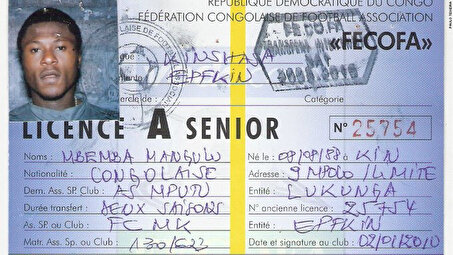 RÉPUBLIQUE DÉMOCRATIQUE DU CONGO
FÉDÉRATION CONGOLAISE DE FOOTBALL ASSOCIATION
KINSHASA
FECOFA
«FECOFA»
EPFKIN
Cercle de :
Catégorie
LICENCE A SENIOR
N° 25754
Noms : MBEMBA MANGULU
Né le : 08/08/88 à KIN
Nationalité : CONGOLAISE
Adresse : 9 MPOLO/LIMITE
Dern. Ass. SP. Club : AS MPUTU
Entité : LUKUNGA
Durée transfert : DEUX SAISONS
N° ancienne licence : 25754
As. SP. ou Club : FC MK
Entité : EPFKIN
Matr. Ass. Sp. ou Club : 130/622
Date et signature au club : 02/01/2010